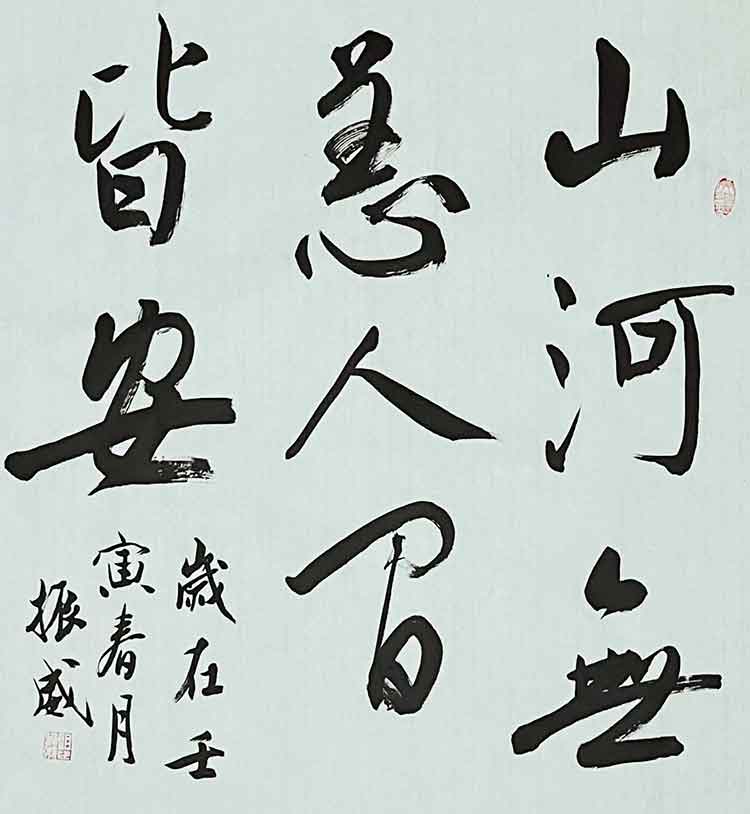 山河無
恙人間
皆安
歲在壬
寅春月
振威